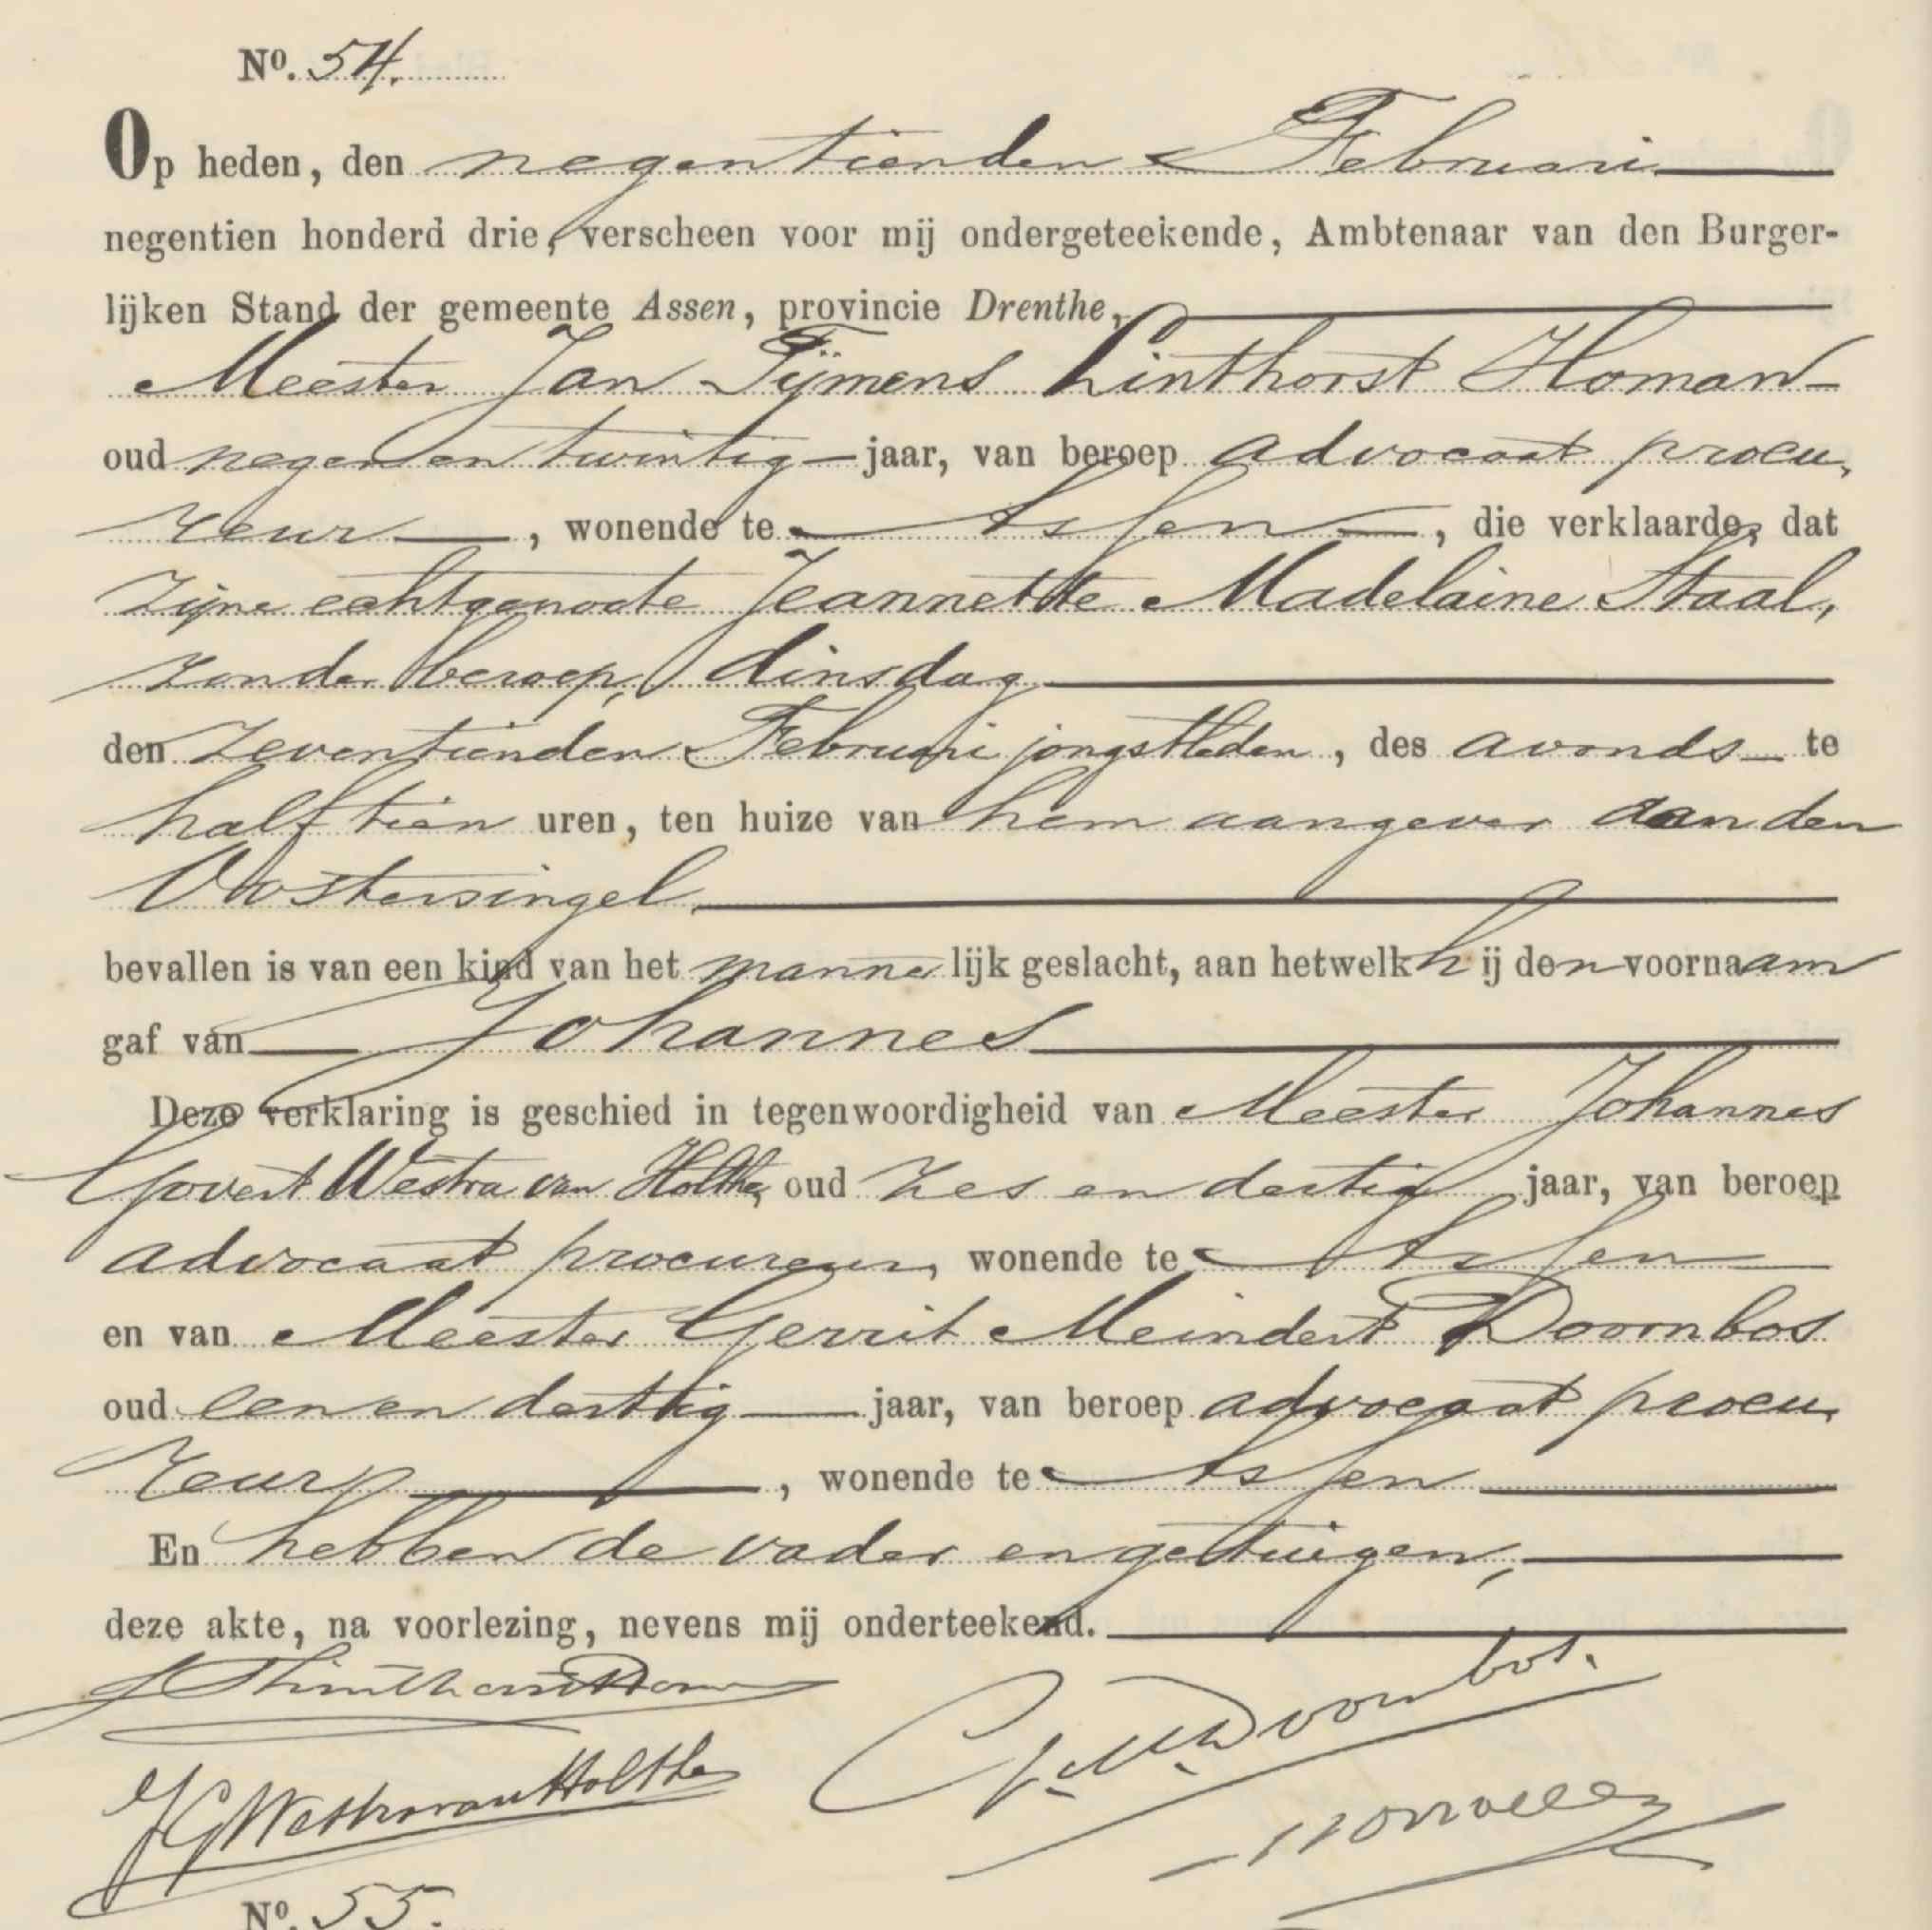 No. 54.
Op heden, den negentienden Februari
negentien honderd drie, verscheen voor mij ondergeteekende, Ambtenaar van den Burger-
lijken Stand der gemeente Assen, provincie Drenthe,
Meester Jan Tijmens Linthorst Homan
oud negen en twintig jaar, van beroep advocaat procu-
reur, wonende te Assen, die verklaarde, dat
zijne echtgenoote Jeannette Madelaine Staal,
zonder beroep, dinsdag
den zeventienden Februari jongstleden, des avonds te
half tien uren, ten huize van hem aangever aan den
Oostersingel
bevallen is van een kind van het mannelijk geslacht, aan hetwelk hij den voornaam
gaf van Johannes
Deze verklaring is geschied in tegenwoordigheid van Meester Johannes
Govert Westra van Holthe, oud zes en dertig jaar, van beroep
advocaat procureur, wonende te Assen
en van Meester Gerrit Meindert Doornbos
oud een en dertig jaar, van beroep advocaat procu-
reur, wonende te Assen
En hebben de vader en getuigen,
deze akte, na voorlezing, nevens mij onderteekend.
J Linthorst Homan
G. M. Doornbos.
JG Westra van Holthe
No. 55.